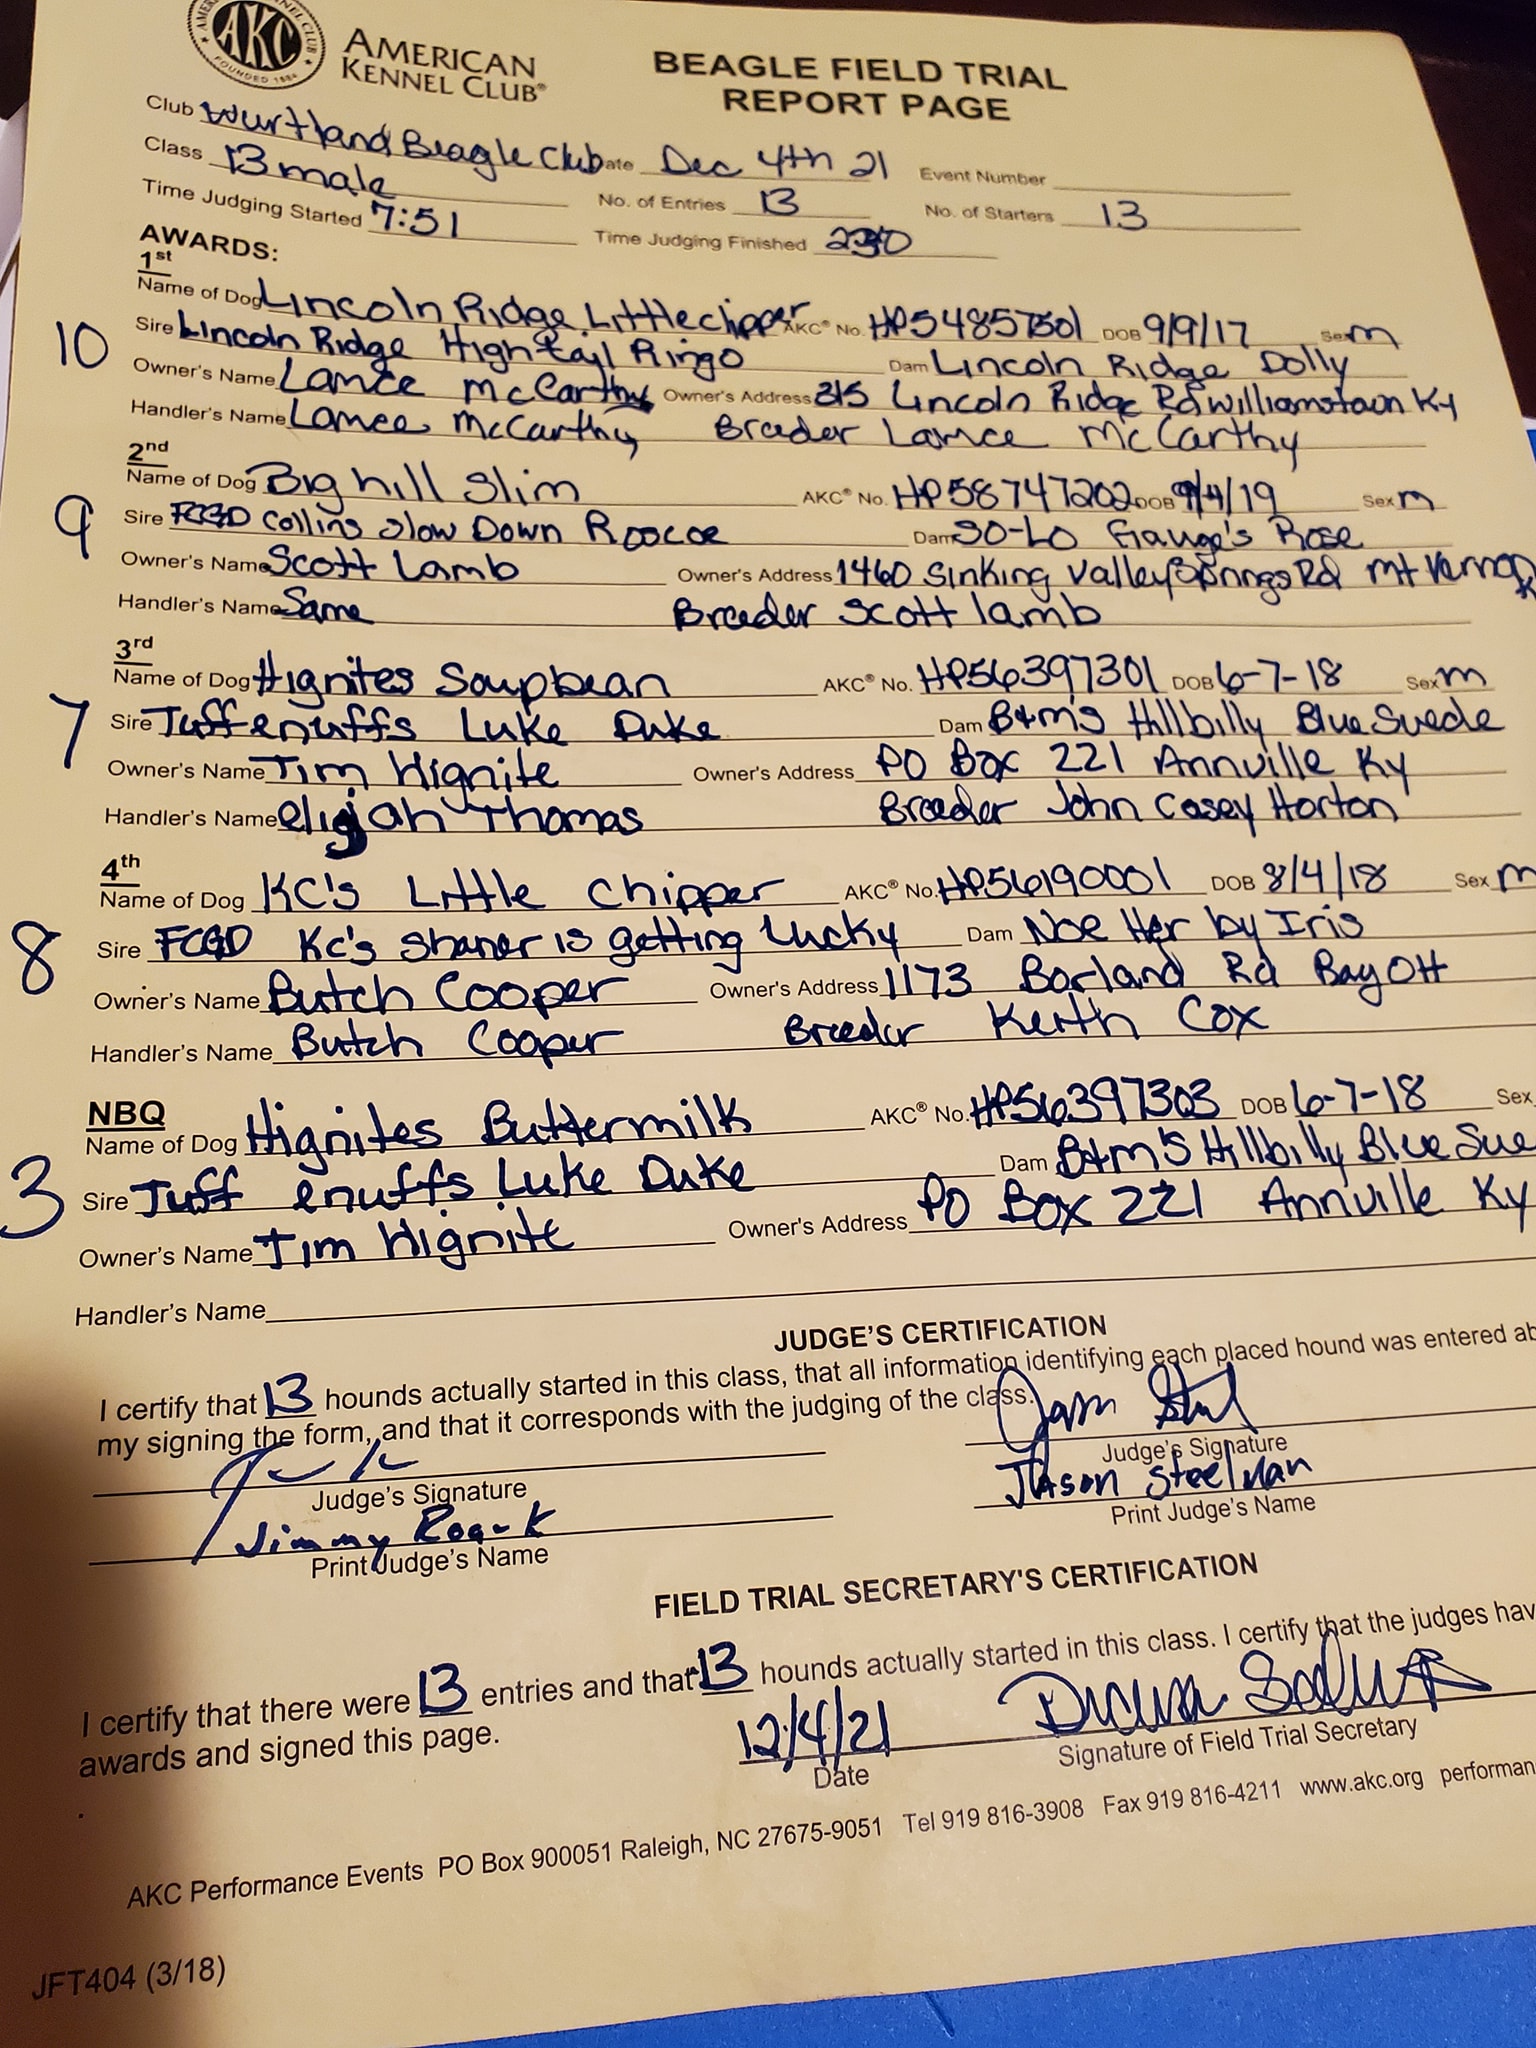 AMERICAN KENNEL CLUB FOUNDED 1884
AKC
AMERICAN
KENNEL CLUB®
BEAGLE FIELD TRIAL
REPORT PAGE
Club Wurtland Beagle Club Date Dec 4th 21 Event Number
Class 13 male No. of Entries 13 No. of Starters 13
Time Judging Started 7:51 Time Judging Finished 230
AWARDS:
1st
Name of Dog Lincoln Ridge Little chipper AKC® No. HP54857501 DOB 9/9/17 Sex m
10 Sire Lincoln Ridge High tail Ringo Dam Lincoln Ridge Dolly
Owner's Name Lance McCarthy Owner's Address 315 Lincoln Ridge Rd williamstown Ky
Handler's Name Lance McCarthy Breeder Lance McCarthy
2nd
Name of Dog Big hill Slim AKC® No. HP58747202 DOB 9/4/19 Sex m
9 Sire FCGD Collins Slow Down Roscoe Dam SO-LO Gauge's Rose
Owner's Name Scott Lamb Owner's Address 1460 Sinking Valley Springs Rd mt Vernon
Handler's Name Same Breeder Scott lamb
3rd
Name of Dog Hignites Soupbean AKC® No. HP56397301 DOB 6-7-18 Sex m
7 Sire Tuffenuffs Luke Duke Dam B+m's Hillbilly Blue Suede
Owner's Name Tim Hignite Owner's Address PO Box 221 Annville Ky
Handler's Name elijah Thomas Breeder John Casey Horton
4th
Name of Dog KC's Little Chipper AKC® No. HP56190001 DOB 8/4/18 Sex m
8 Sire FCGD KC's Shaner is getting Lucky Dam Noe Her by Iris
Owner's Name Butch Cooper Owner's Address 1173 Borland Rd Bay OH
Handler's Name Butch Cooper Breeder Keith Cox
NBQ
Name of Dog Hignites Buttermilk AKC® No. HP56397303 DOB 6-7-18 Sex
3 Sire Tuff enuffs Luke Duke Dam B+m's Hillbilly Blue Sue
Owner's Name Tim Hignite Owner's Address PO Box 221 Annville Ky
Handler's Name
JUDGE'S CERTIFICATION
I certify that 13 hounds actually started in this class, that all information identifying each placed hound was entered ab
my signing the form, and that it corresponds with the judging of the class.
Judge's Signature Judge's Signature
Jimmy Roark Jason Steelman
Print Judge's Name Print Judge's Name
FIELD TRIAL SECRETARY'S CERTIFICATION
I certify that there were 13 entries and that 13 hounds actually started in this class. I certify that the judges hav
awards and signed this page.
12/4/21
Date Signature of Field Trial Secretary
AKC Performance Events PO Box 900051 Raleigh, NC 27675-9051 Tel 919 816-3908 Fax 919 816-4211 www.akc.org performan
JFT404 (3/18)